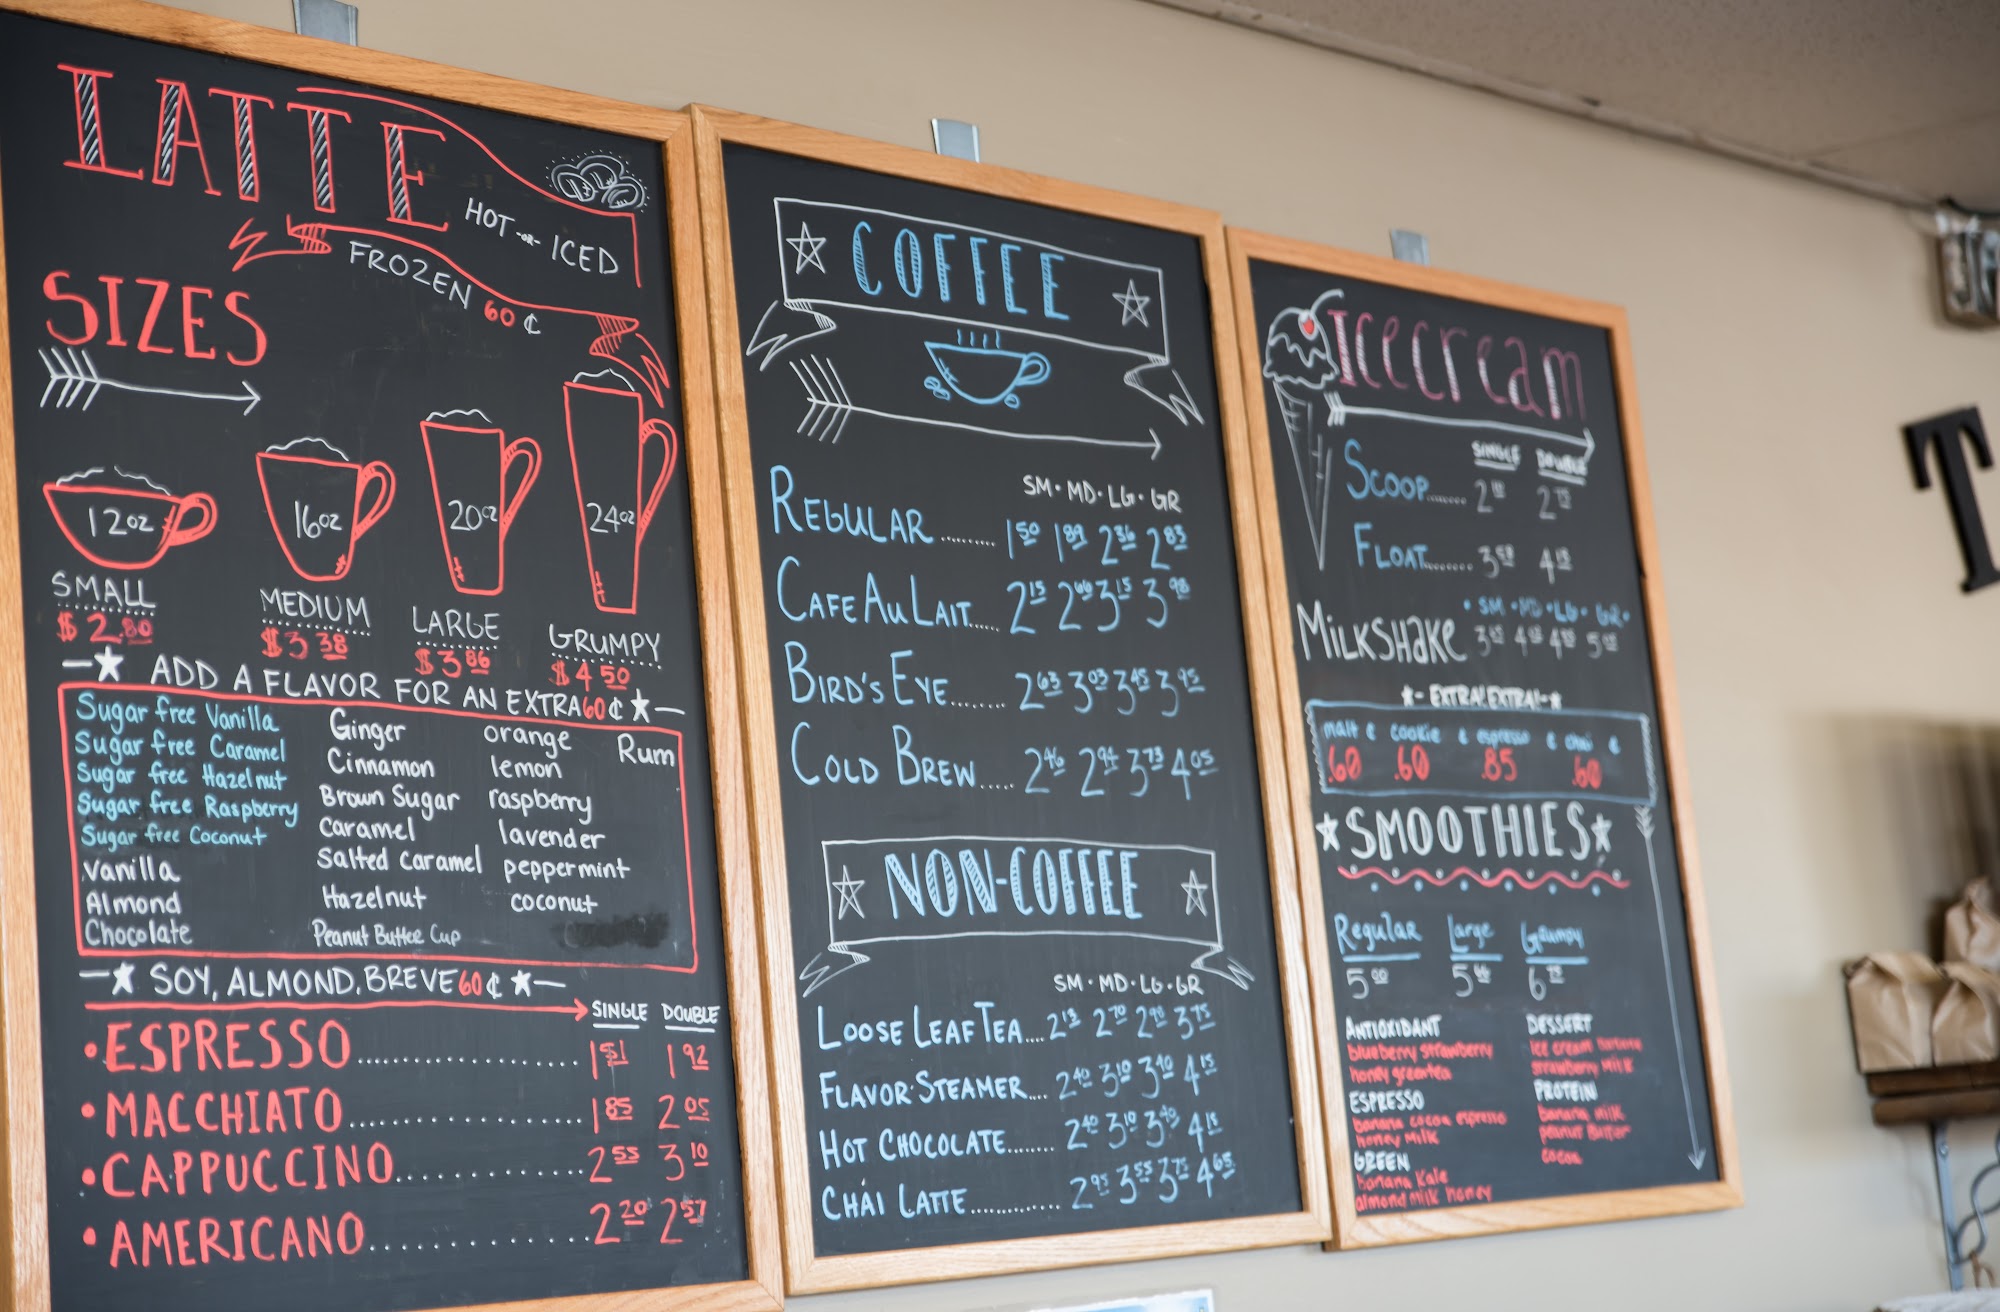 LATTE
HOT -or- ICED
FROZEN 60¢
SIZES
12oz
16oz
20oz
24oz
SMALL
$2.80
MEDIUM
$3.38
LARGE
$3.86
GRUMPY
$4.50
ADD A FLAVOR FOR AN EXTRA 60¢
Sugar free Vanilla
Sugar free Caramel
Sugar free Hazelnut
Sugar free Raspberry
Sugar free Coconut
Vanilla
Almond
Chocolate
Ginger
Cinnamon
Brown Sugar
Caramel
Salted Caramel
Hazelnut
Peanut Butter Cup
orange
lemon
raspberry
lavender
peppermint
coconut
Rum
SOY, ALMOND, BREVE 60¢
SINGLE DOUBLE
•ESPRESSO.................... 1.51 1.92
•MACCHIATO.................... 1.85 2.05
•CAPPUCCINO................ 2.55 3.10
•AMERICANO................ 2.20 2.57
COFFEE
SM•MD•LG•GR
REGULAR.......... 1.50 1.89 2.36 2.83
CAFE AU LAIT...... 2.15 2.60 3.15 3.98
BIRD'S EYE........ 2.63 3.03 3.45 3.95
COLD BREW..... 2.46 2.94 3.73 4.05
NON-COFFEE
SM•MD•LG•GR
LOOSE LEAF TEA.... 2.13 2.70 2.90 3.75
FLAVOR STEAMER.... 2.40 3.10 3.40 4.15
HOT CHOCOLATE........ 2.40 3.10 3.40 4.15
CHAI LATTE............. 2.95 3.55 3.75 4.65
Icecream
SINGLE DOUBLE
SCOOP....... 2 2.75
FLOAT........ 3 4
•SM•MD•LG•GR•
MILKSHAKE 3 4 4 5
-EXTRA! EXTRA!-
malt ¢ cookie ¢ espresso ¢ chai ¢
.60 .60 .85 .60
SMOOTHIES
Regular Large Grumpy
5.00 5 6
ANTIOXIDANT
blueberry strawberry
honey greentea
ESPRESSO
banana cocoa espresso
honey milk
GREEN
banana Kale
almond milk honey
DESSERT
ice cream banana
strawberry milk
PROTEIN
banana milk
peanut butter
cocoa
T